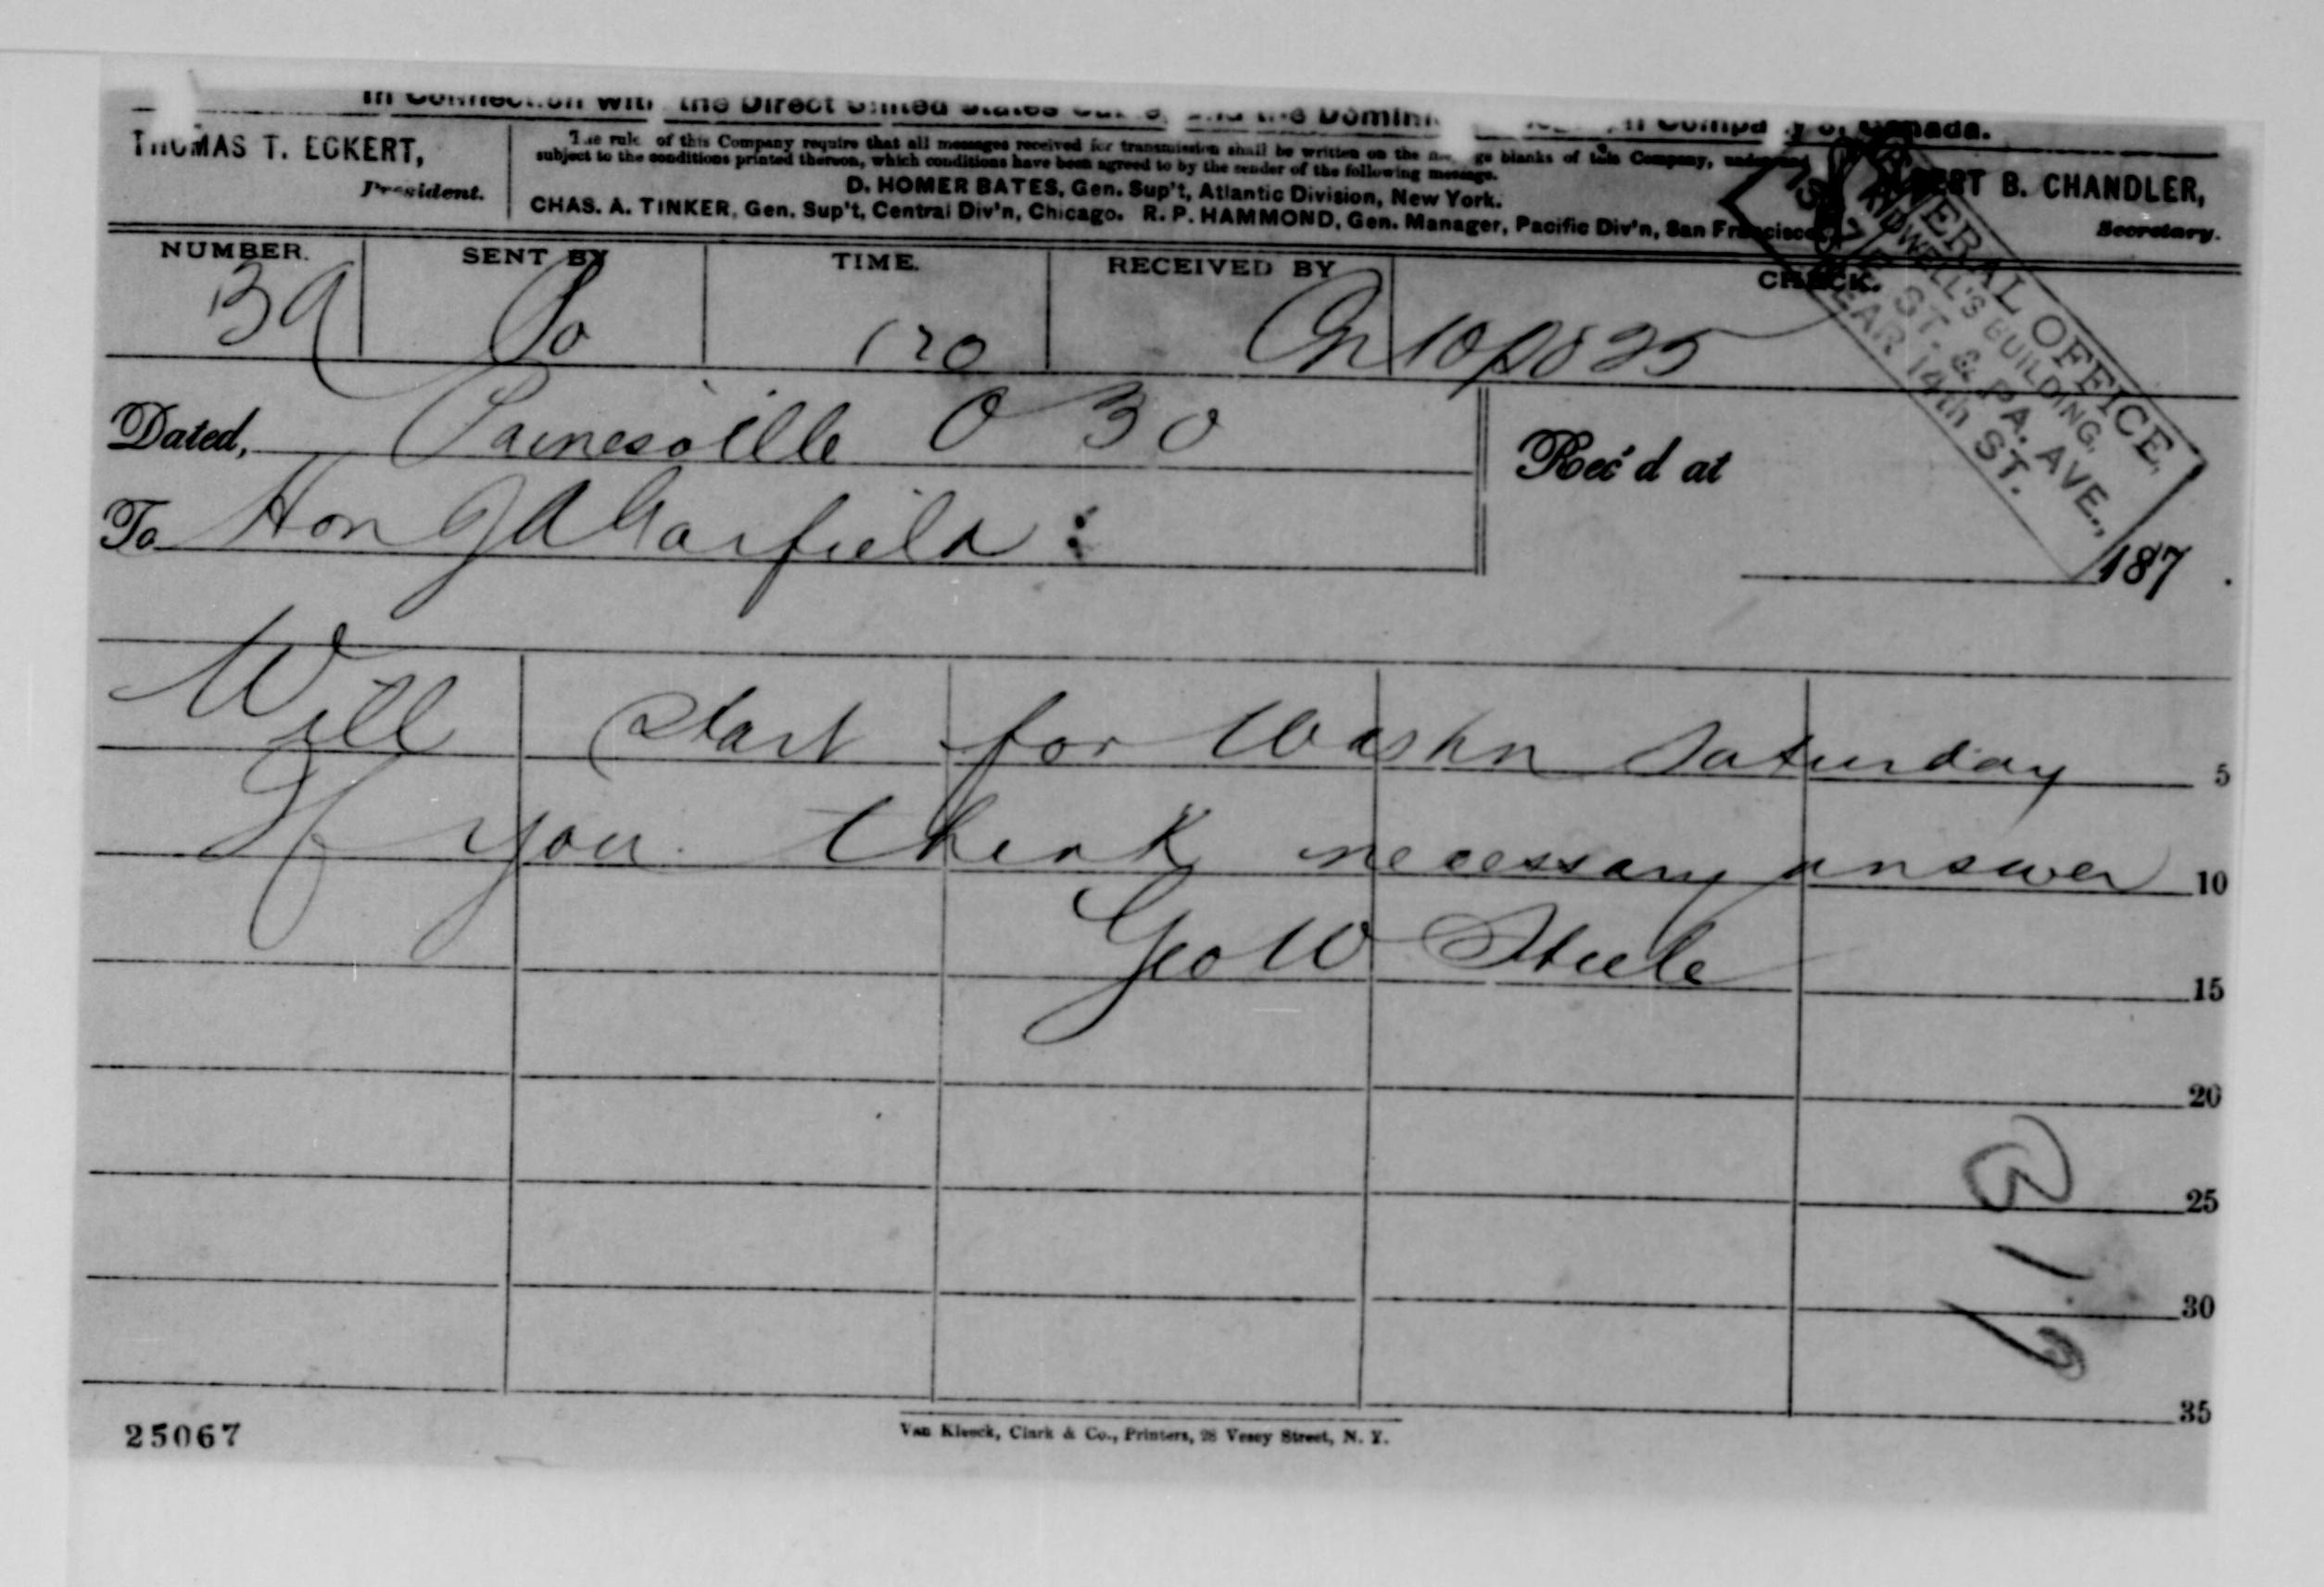 In Connection with the Direct United States Cable, and the Dominion Company of Canada.
THOMAS T. ECKERT,
President.
The rules of this Company require that all messages received for transmission shall be written on the message blanks of this Company, under and
subject to the conditions printed thereon, which conditions have been agreed to by the sender of the following message.
D. HOMER BATES, Gen. Sup't, Atlantic Division, New York.
CHAS. A. TINKER, Gen. Sup't, Central Div'n, Chicago. R. P. HAMMOND, Gen. Manager, Pacific Div'n, San Francisco.
ALBERT B. CHANDLER,
Secretary.
GENERAL OFFICE,
KIDWELL'S BUILDING,
ST. & PA. AVE.,
NEAR 14th ST.
NUMBER. SENT BY TIME. RECEIVED BY CHECK.
39 120
Dated, Painesville O 30
Rec'd at
To Hon J A Garfield :
187 .
Will Start for Washn Saturday 5
If you think necessary answer 10
Geo W Steele 15
20
25
30
35
319
25067
Van Kleeck, Clark & Co., Printers, 28 Vesey Street, N. Y.